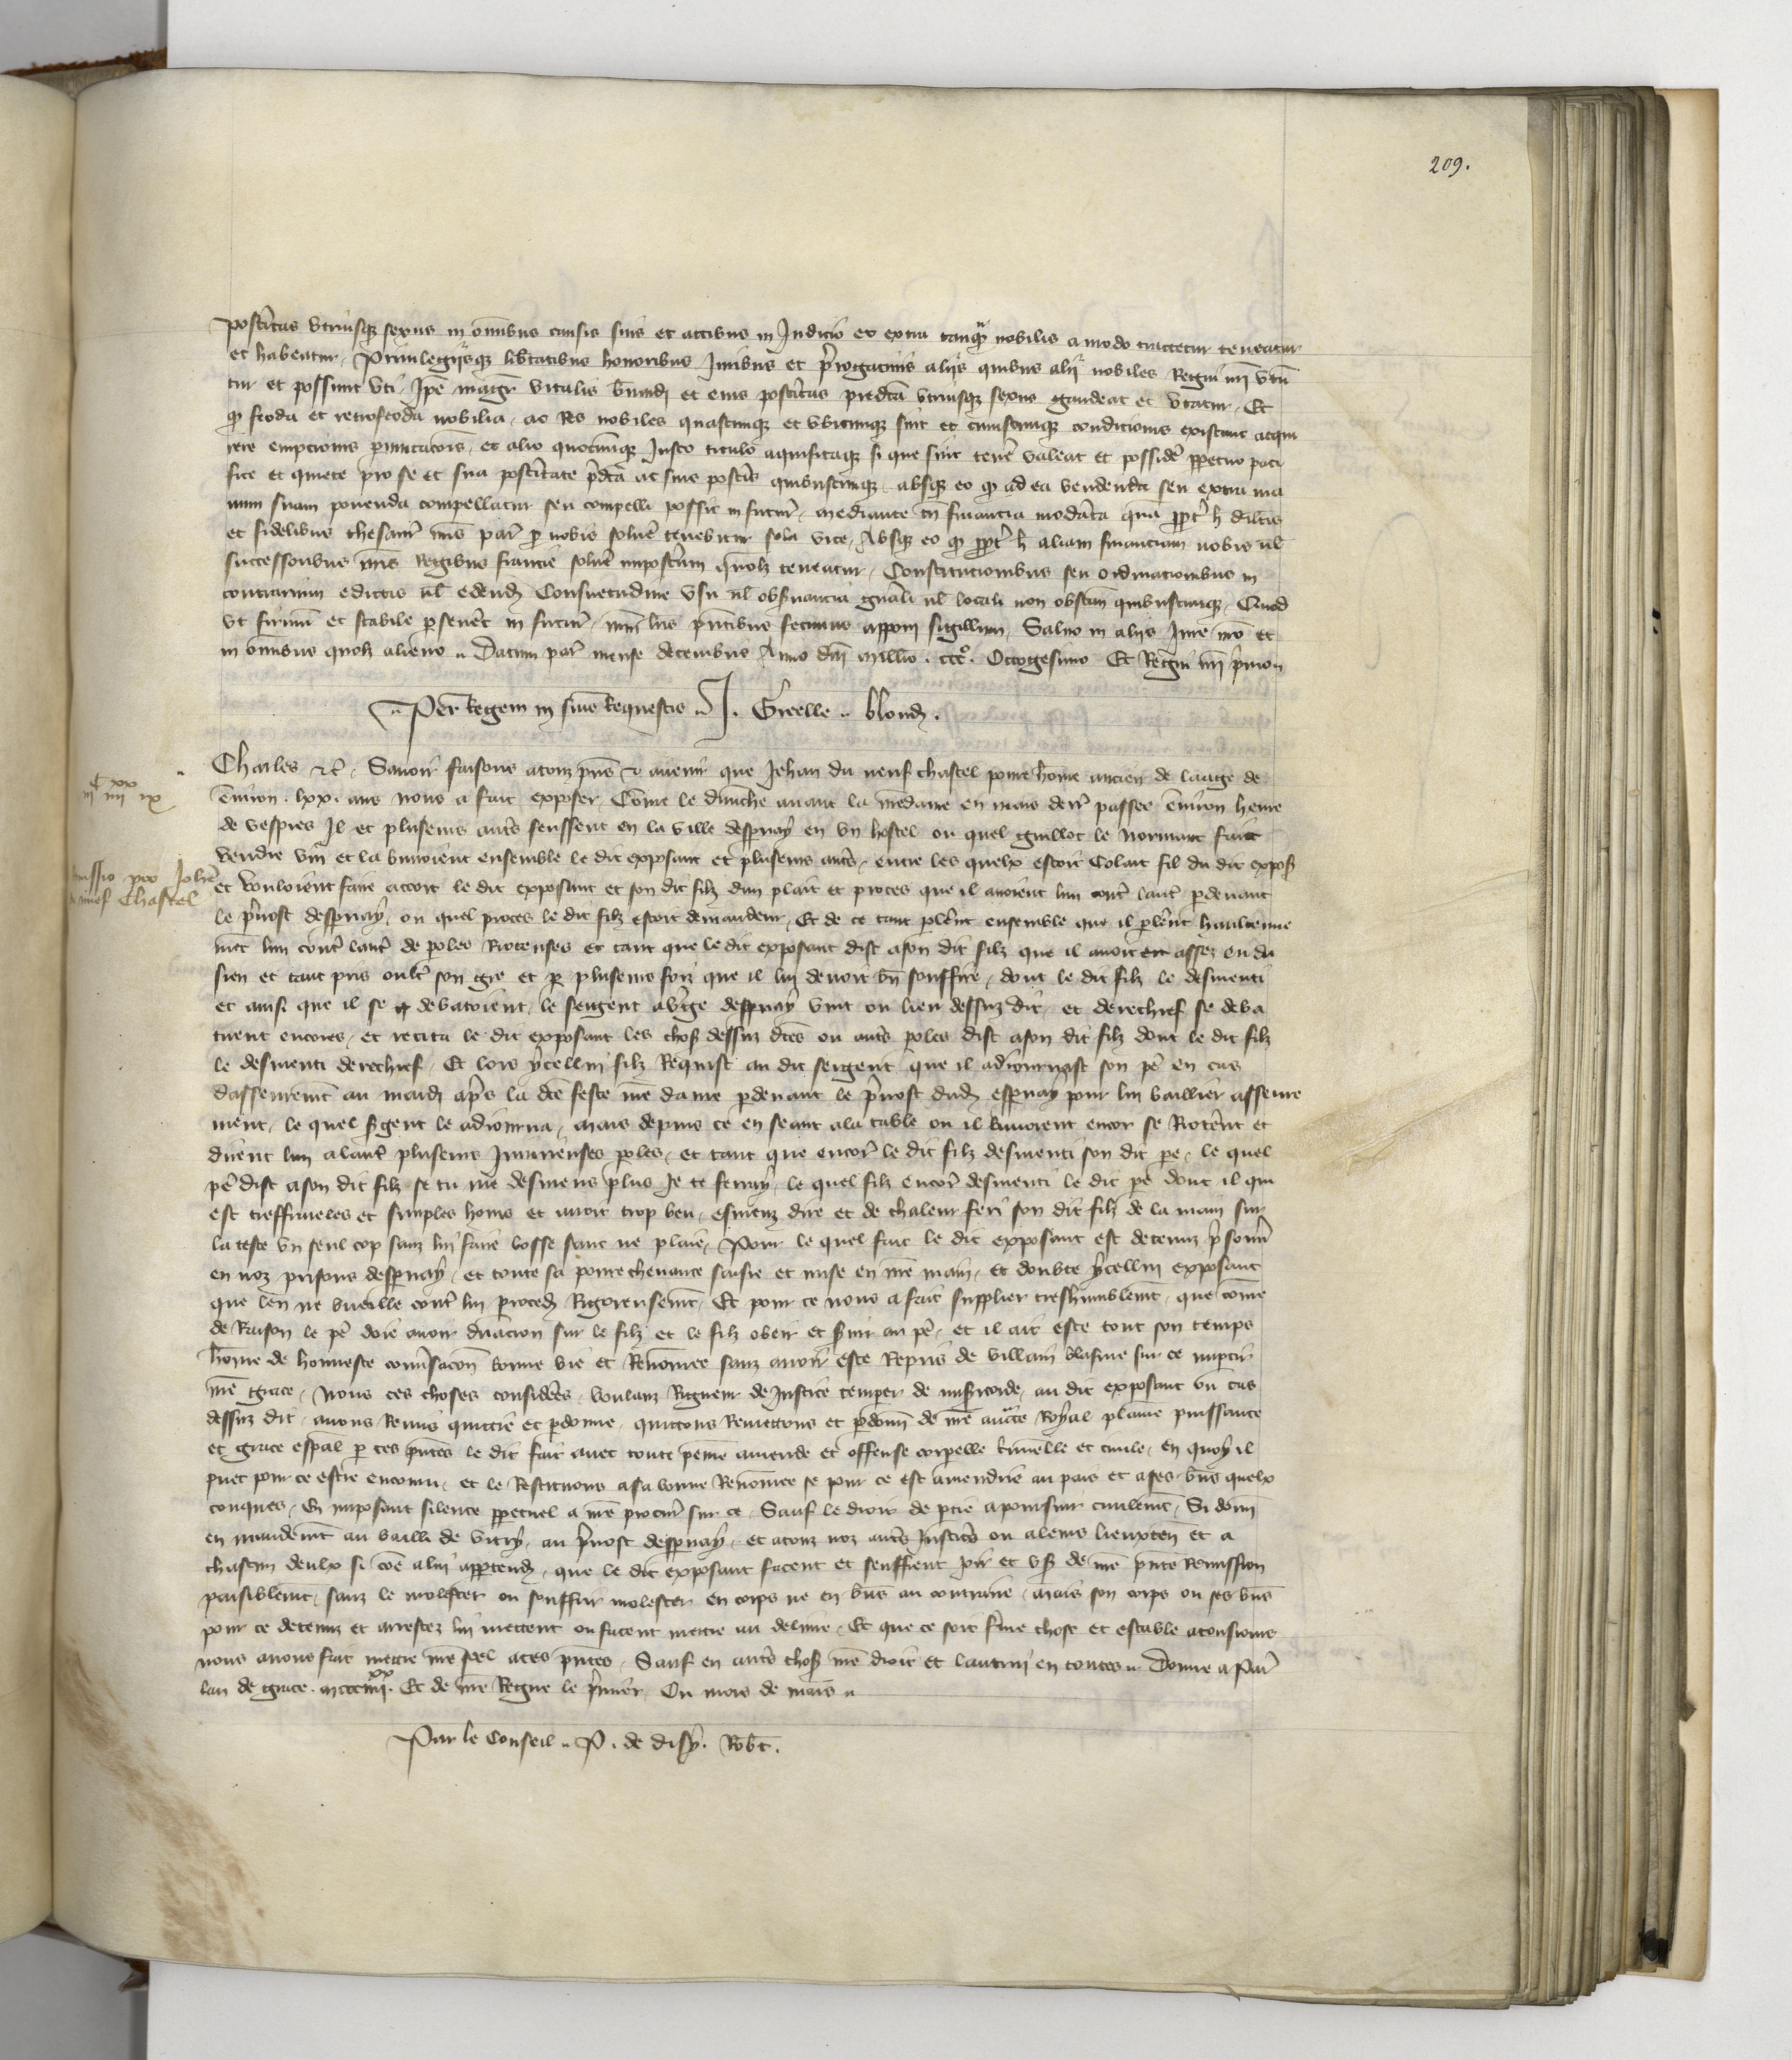 209.
postĩtas vtriusq sexus in om̃ibus causis suis et actibus in Judicio et extra tanqᵃ nobilis a modo tractetur teneatur
et habeatur, Priuilegijsq lib̃tatibus honoribus Juribus et p̃rogatiuis alijs quibus alij nobiles Regni nr̃i vtũ
tur et possunt vti, Ip̃e mag̃r vitalis et eius post̃itas predc̃a vtriusq sexus gaudeat et vtatur, Et
q feoda et retrofeoda nobilia, ac Res nobiles quascumq et vbicumq sint et cuiuscumq condicionis existant acqui
rere empcionis p̃mutac̃ois, et alio quocumq Justo titulo aquisitaq si que sint tener̃ valeat et possider̃ p̱petuo paci
fice et quiete pro se et sua post̃itate p̃dc̃a ac sue post̃is quibuscumq, absq eo q ad ea vendenda seu extra ma
num suam ponenda compellatur seu compelli possit in futur̃, mediante tñ financia moderata quã p̱pt̃ h̃ dil̃cis
et fidelibus thesaur̃ nr̃is par̃ p̱ nobis soluer̃ tenebitur sola vice, Absq eo q p̱pt̃ h̃ aliam financiam nobis ul̃
successoribus nr̃is Regibus francie soluer̃ impost̃um quoh teneatur, Constitucionibus seu ordinacionibus in
contrarium edictis ul̃ edend Consuetudine vsu ul̃ obs̃uancia gñali ul̃ locali non obstañ quibuscumq, Quod
vt firmũ et stabile perseuer̃t in futur̃, nr̃m lr̃is p̃ntibus fecimus apponi sigillum, Saluo in alijs Jure nr̃o et
in om̃ibus quoh alieno .. Datum par̃ mense decembris Anno dñi millio . cccº. Octogesimo Et Regni nr̃i p̃mo
.. Per Regem in suis Requestis .. J. Greelle .. blond .
C iiijˣˣ ix
Charles etc̃, Sauoir faisons atouz p̃ns et auenir que Jehan du neuf chastel poure hõme ancien de laage de
enuiron . lxx . ans nous a fait exposer, Cõme le dimẽche auant la nr̃e dame en mars derr̃ passee enuiron heure
de vespres Il et plusieurs autr̃s feussent en la ville desp̱nay en vn hostel ou quel guillot le normant fait
vendre vin et la buuoient ensemble le dit exposant et plusieurs autr̃s, entre les quelx estoit Colart fil du dit expos
missio pro Joh̃e
neuf Chastel
et vouloient faire accort le dit exposant et son dit filz dun plait et proces que il auoient lun contr̃ lautr̃ p̱deuant
le p̃uost desp̱nay, ou quel proces le dit filz estoit demandeur, Et de ce tant p̱ler̃nt ensemble que il p̱ler̃nt haultemẽ
ment lun contr̃ lautr̃ de p̱oles Rioteuses et tant que le dit exposant dist ason dit filz que il auoit eu assez eu du
sien et tant pris oultr̃ son gre et p̱ plusieurs foiz que il lui deuoit bñ souffire, dont le dit filz le desmenti
et ainsi que il se debatoient, le sergent desp̱nay vint ou lieu dessuz dit, et derechief se deba
tirent encores, et recita le dit exposant les chos dessuz dc̃es ou autr̃s p̱oles dist ason dit filz dont le dit filz
le desmenti derechief, Et lors ycellui filz Requist au dit sergent que il adiournast son pe͂ en cas
dasseuremẽt au mardi apr̃s la dc̃e feste nr̃e dame p̱deuant le p̃uost dud esp̱nay pour lui baillier asseure
ment, le quel s̃gent le adiourna, mais depuis ce en seant ala table ou il buuoient encor se Rioter̃nt et
dirent lun alautr̃ plusieurs Iniurieuses p̱oles, et tant que encor̃ le dit filz desmenti son dit pe͂, le quel
pe͂ dist ason dit filz se tu me desmens plus Je te ferray, le quel filz encor̃ desmenti le dit pe͂ dont il qui
est tresfrueles et simples homs et auoit trop beu, esmeuz dire et de chaleur feri son dit filz de la main sur
la teste vn seul cop sanz lui faire bosse sanc ne plaie, Pour le quel fait le dit exposant est detenuz p̃sonn̄
en noz prisons desp̱nay, et toute sa poure cheuance saisie et mise en nr̃e main, et doubte ycellui exposant
que len ne vueille contr̃ lui p̱ced Rigoreusemẽt, Et pour ce nous a fait supplier treshumblemẽt, que cõme
de Raison le pe͂ doie auoir dñacion sur le filz et le filz obeir et s̃uir au pe͂, et il ait este tout son temps
hõme de honneste conũsacõn bonne vie et Renõmee sanz auoir este Repris de villain blasme sur ce impartir
nr̃e grace, Nous ces choses considerẽs, voulanz Rigueur de Justice temper̃ de mis̃icorde, au dit exposant ou cas
dessuz dit, auons Remis quittie et p̱donne, quittons Remettons et p̱donñ de nr̃e auct̃e Royal plaine puissance
et grace esp̱al p̱ ces p̃ntes le dit fait auec toute peine amende et offense corp̱elle c̃iminelle et ciuile, en quoy il
puet pour ce estre encouru, et le Restituons asa bonne Renõmee se pour ce est amendrie au pais et ases biens quelx
conques, En imposant silence p̱petuel a nr̃e procur̃ sur ce, Sauf le droit de p̱tie apoursuir ciuilemẽt, Si donn̄
en mandemẽt au bailli de vitry, au p̃uost desp̱nay, et atouz noz autr̃s Justic̃s ou aleurs lieuxteñ et a
chascun deulx si cõe alui app̱tend, que le dit exposant facent et seuffrent joir et vs̃ de nr̃e p̃nte Remission
paisiblemẽt, sanz le molester ou souffrir molester en corps ne en biens au contraire, mais son corps ou ses biens
pour ce detenuz et arrestez lui mettent ou facent mettre au deliure, Et que ce soit ferme chose et estable atousiours
nous auons fait mettre nr̃e seel aces p̃ntes, Sauf en autr̃s chos nr̃e droit et lautrui en toutes .. Donne a Par̃
lan de grace . mccciiijˣˣ. Et de nr̃e Regne le p̃mier, Ou mois de mars ..
Par le Conseil .. P. de disy. Rob̃t.